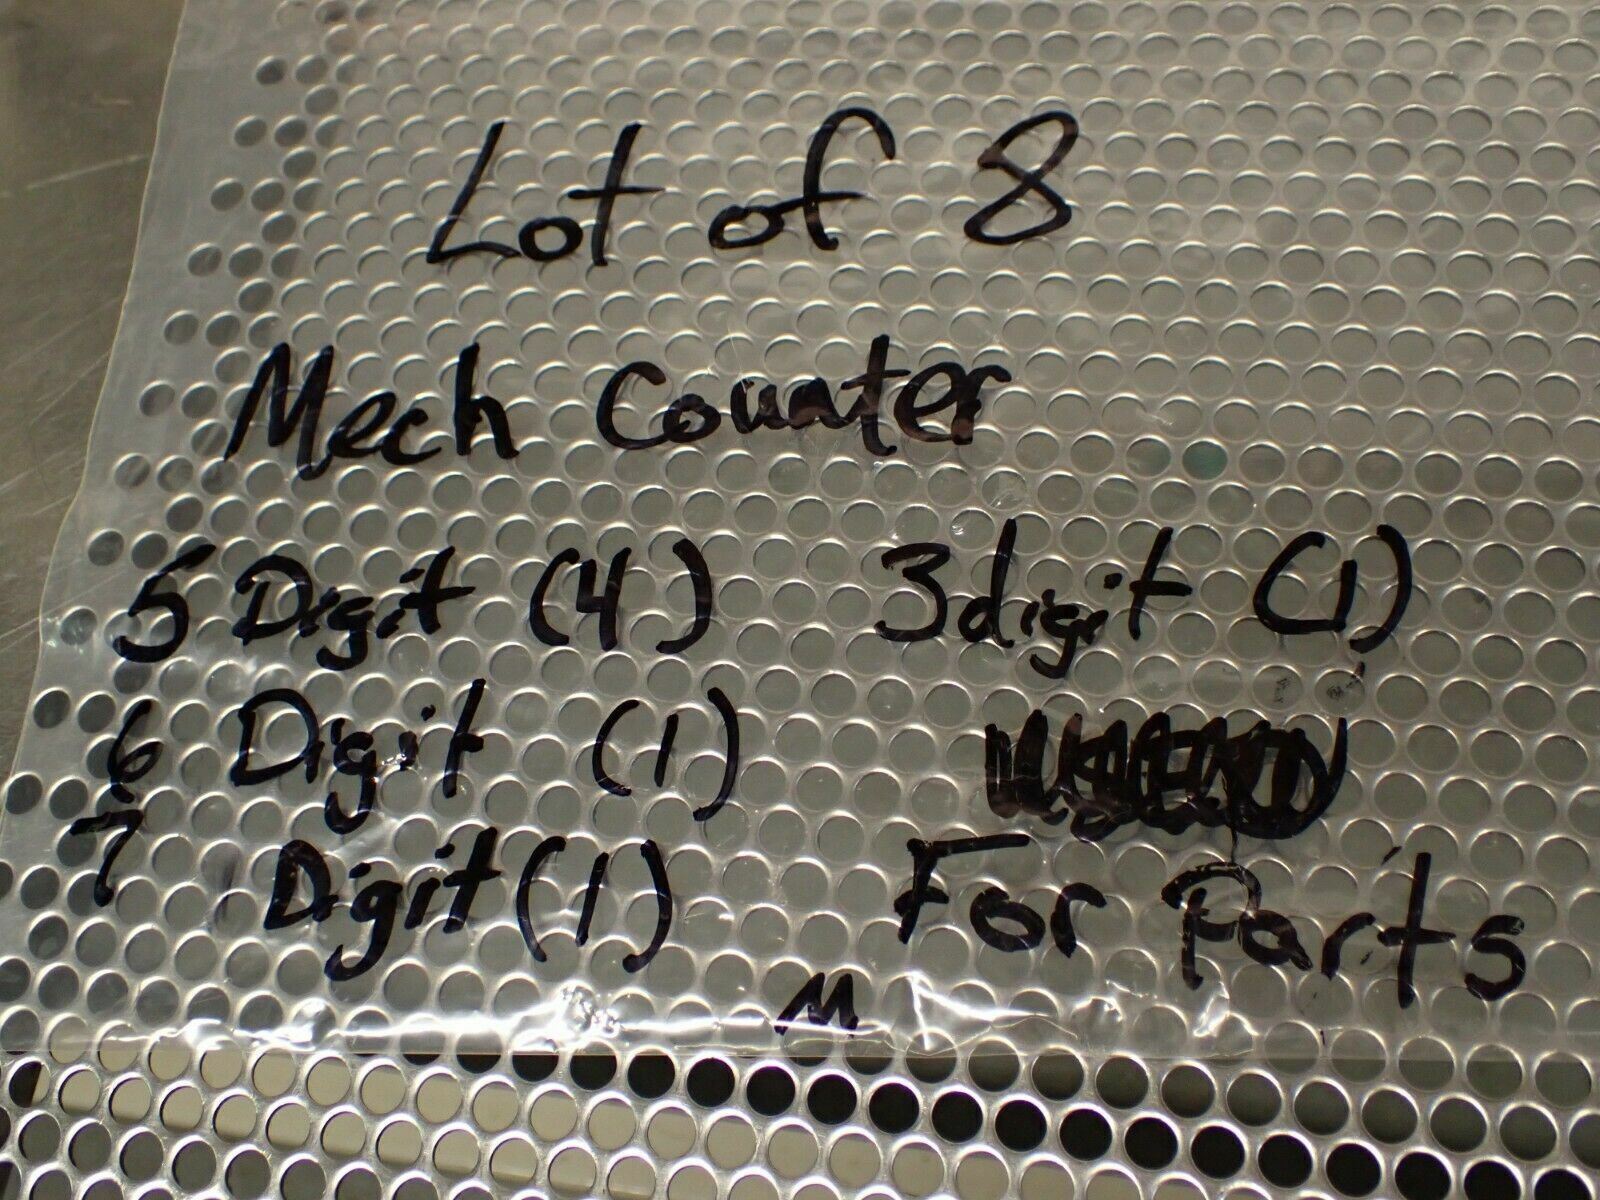 Lot of 8
Mech Counter
5 Digit (4) 3digit (1)
6 Digit (1)
7 Digit (1) For Parts
M